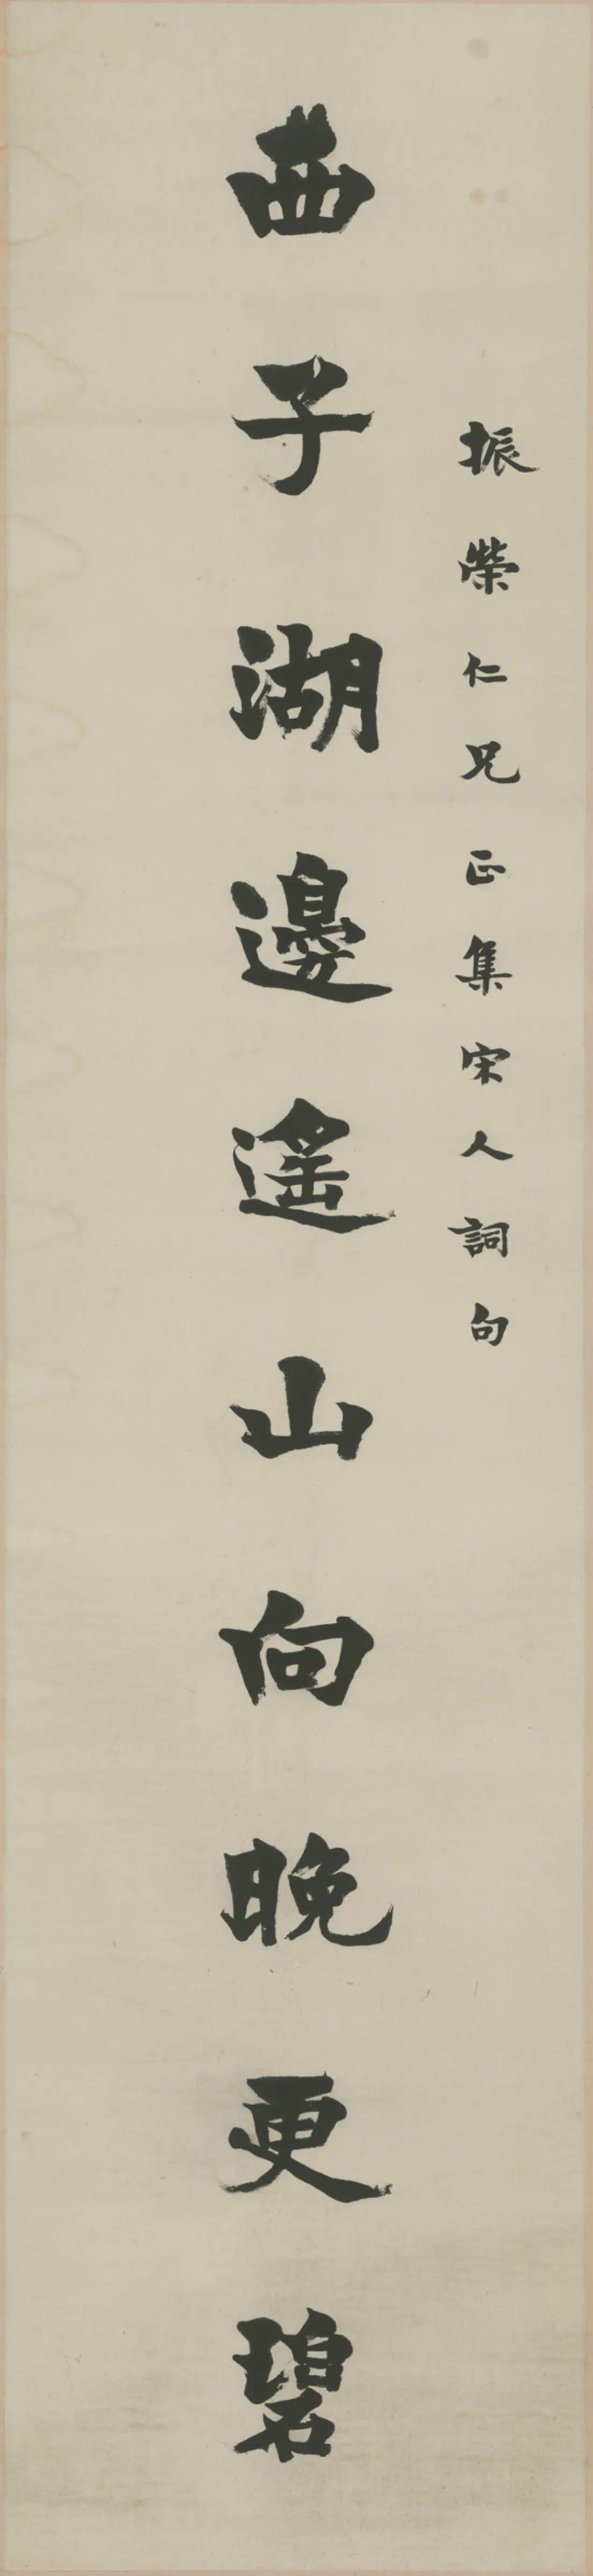 振榮仁兄正集宋人詞句
西子湖邊遙山向晚更碧